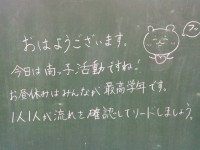 おはようございます。
今日は南っ子活動ですね!
お昼休みはみんなが最高学年です。
1人1人が流れを確認してリードしましょう。